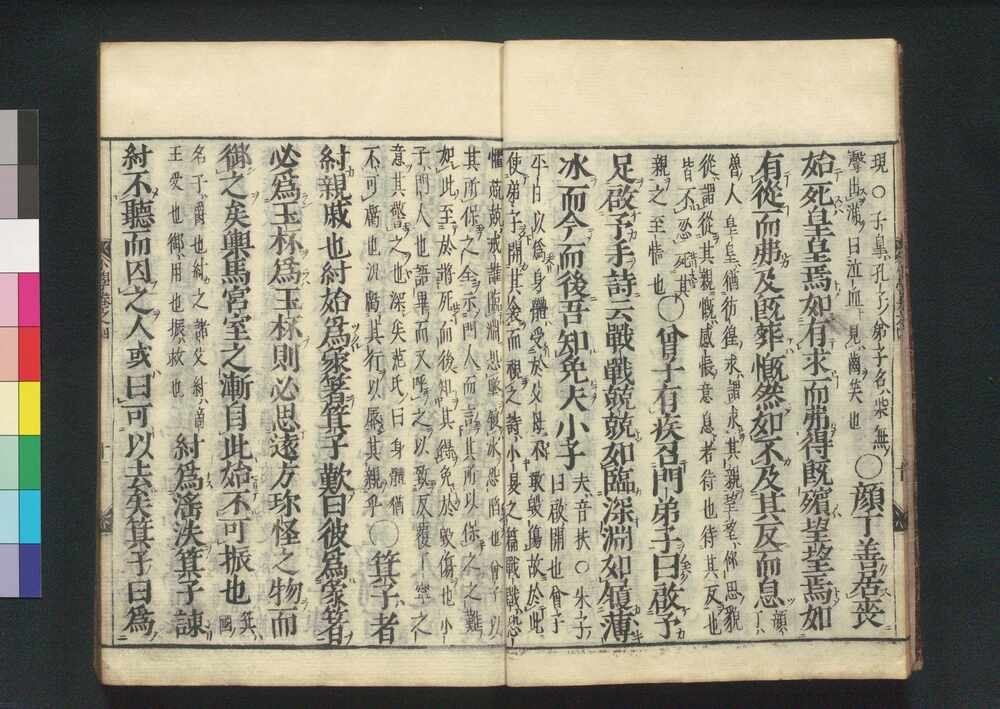 現○子皐孔子弟子名柴無
聲出涕曰泣血見齒笑也
○顔丁善居喪
始死皇皇焉如有求而弗得既殯望望焉如
有從而弗及既葬慨然如不及其反而息
顔丁
魯人皇皇猶彷徨求謂求其親望望仰思貌
從謂從其親慨感悵意息者待也待其反也
皆不忍死其
親之至情也
○曾子有疾召門弟子曰啟予
足啟予手詩云戰戰兢兢如臨深淵如履薄
冰而今而後吾知免夫小子
夫音扶○朱子
曰啟開也曾子
平日以爲身體受於父母不敢毀傷故於此
使弟子開其衾而視之詩小旻之篇戰戰恐
懼兢兢戒謹臨淵恐墜履冰恐陷也曾子以
其所保之全示門人而言其所以保之之難
如此至於將死而後知其得免於毀傷也小
子門人也語畢而又呼之以致反覆丁寧之
意其警之也深矣范氏曰身體猶
不可虧也況虧其行以辱其親乎
○箕子者
紂親戚也紂始爲象箸箕子歎曰彼爲象箸
必爲玉杯爲玉杯則必思遠方珍怪之物而
御之矣輿馬宮室之漸自此始不可振也
箕國
名子爵也紂之諸父紂商
王受也御用也振救也
紂爲淫泆箕子諫
紂不聽而囚之人或曰可以去矣箕子曰爲